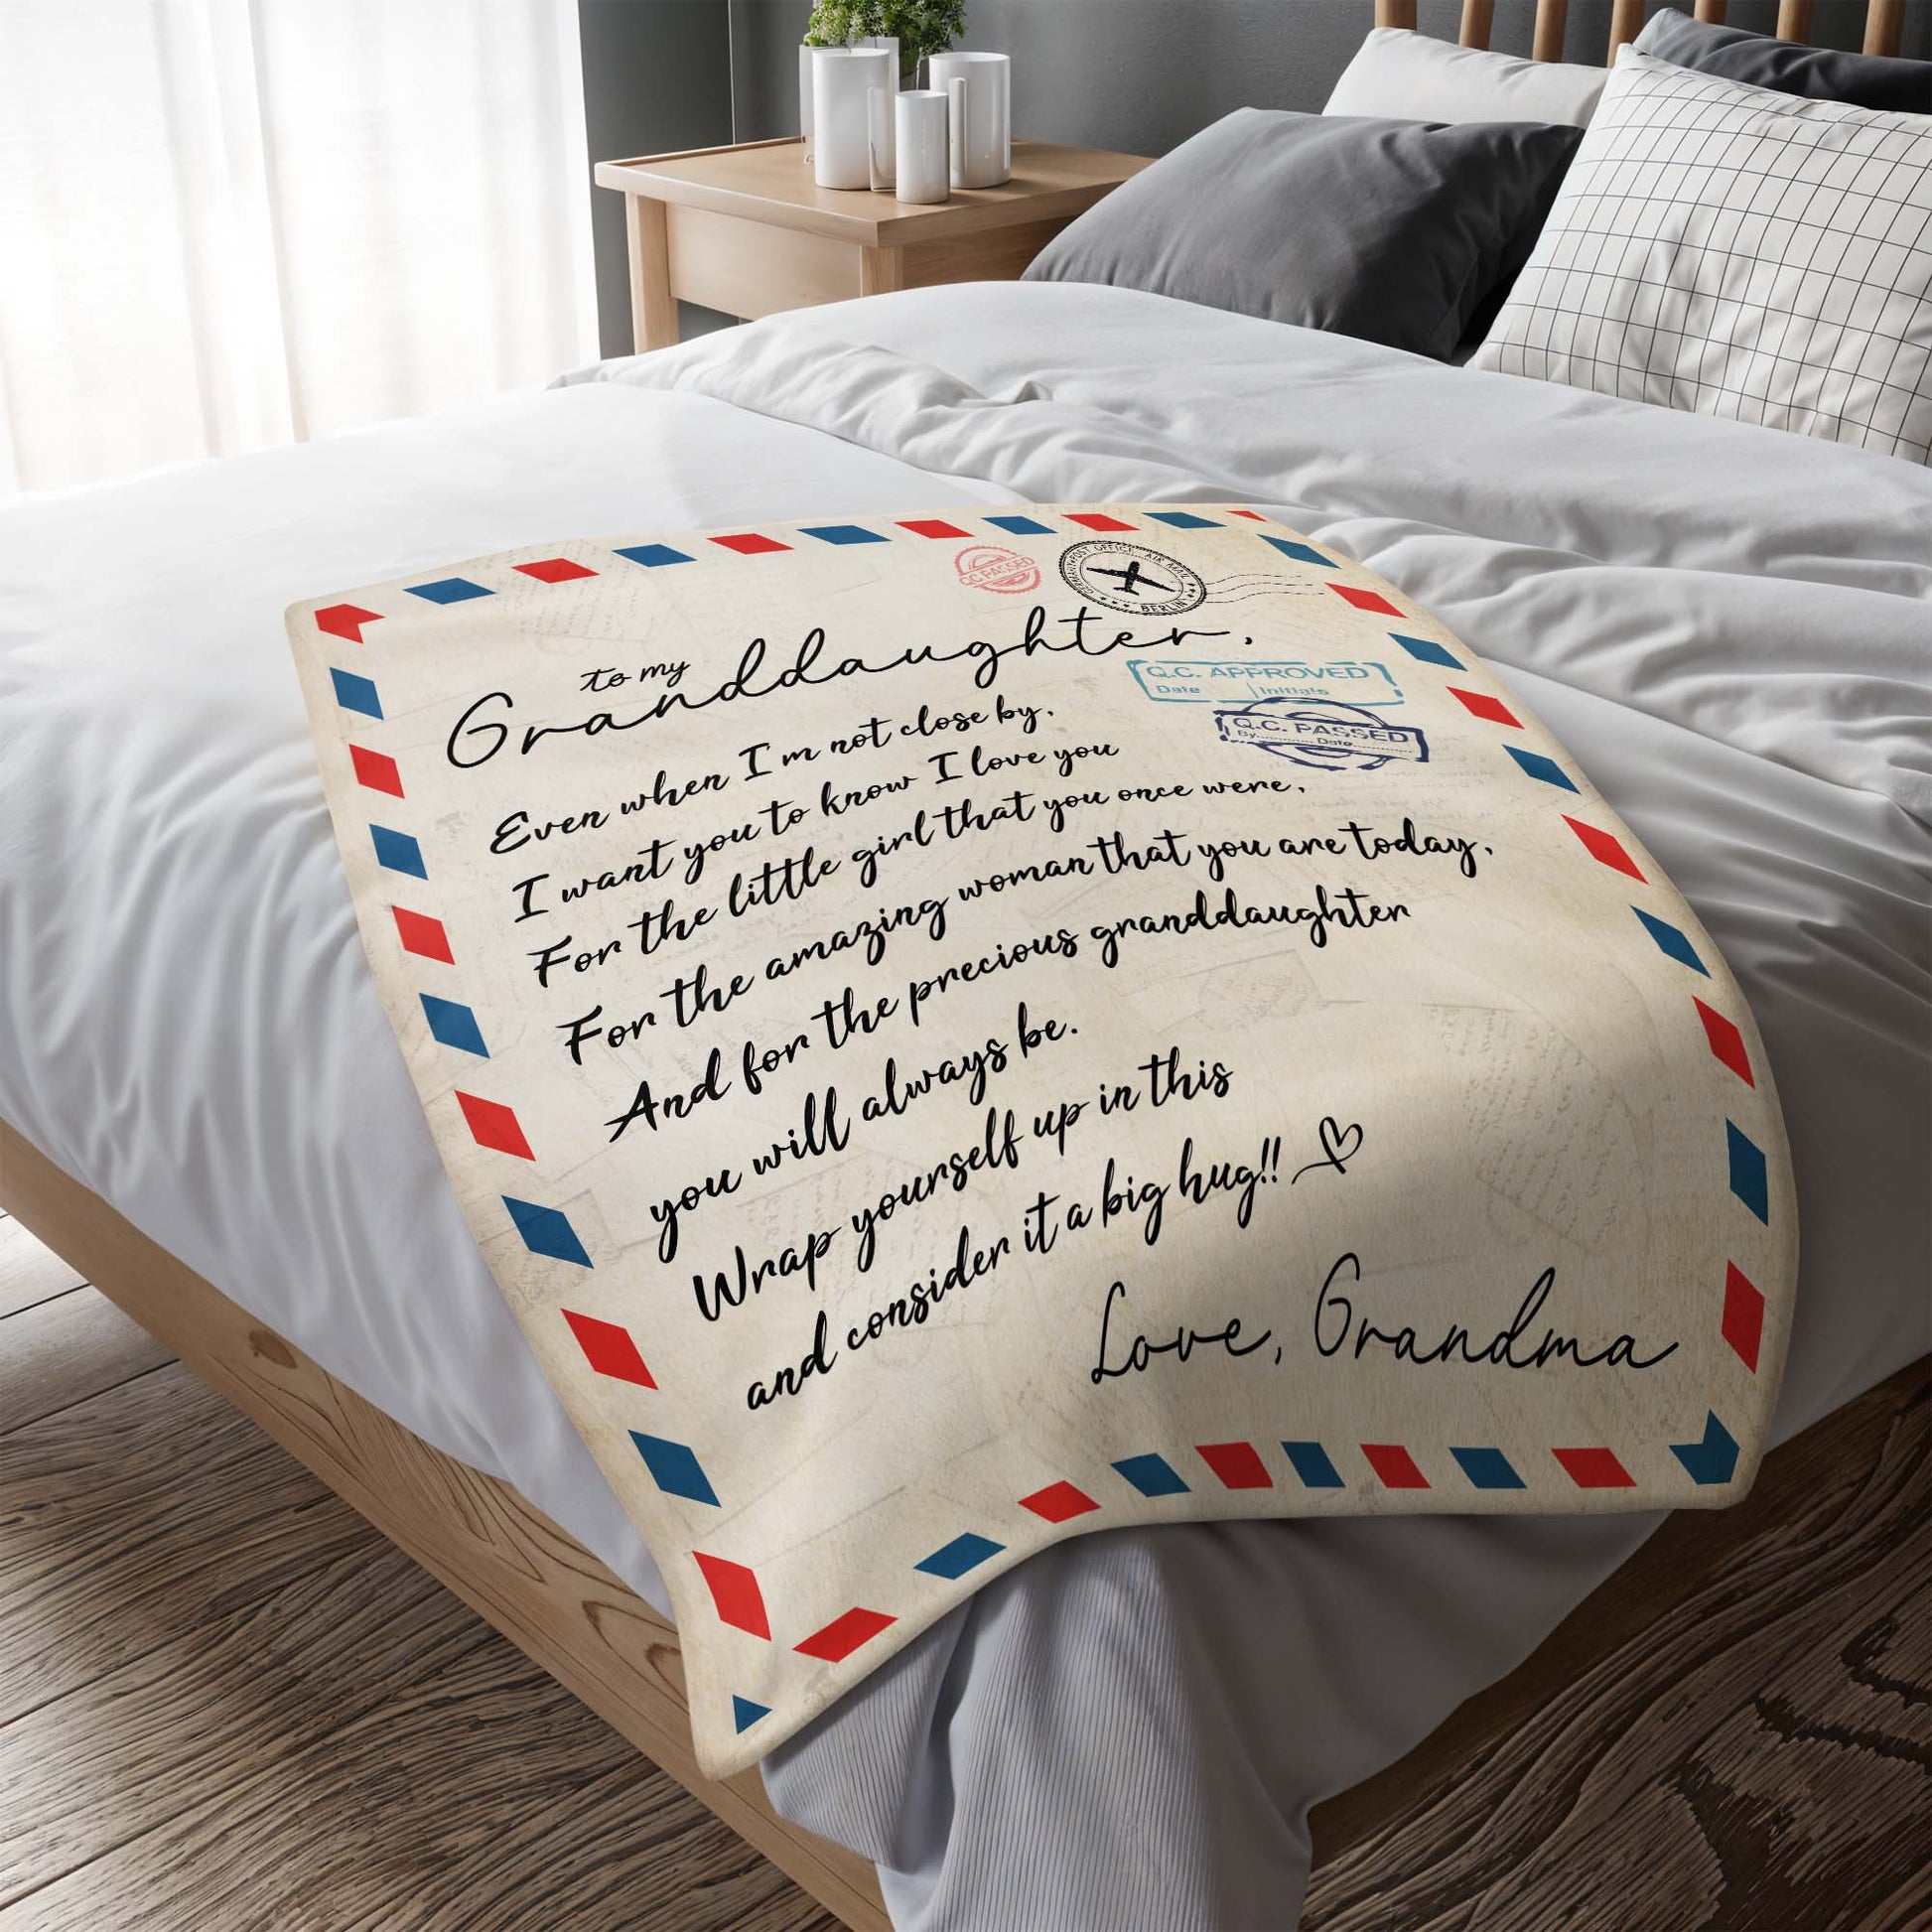 QC PASSED
POST OFFICE AIR MAIL
GERMANY
BERLIN
to my
Granddaughter,
Q.C. APPROVED
Date Initials
Q.C. PASSED
By............ Date..............
Even when I'm not close by,
I want you to know I love you
For the little girl that you once were,
For the amazing woman that you are today,
And for the precious granddaughter
you will always be.
Wrap yourself up in this
and consider it a big hug!!
Love, Grandma